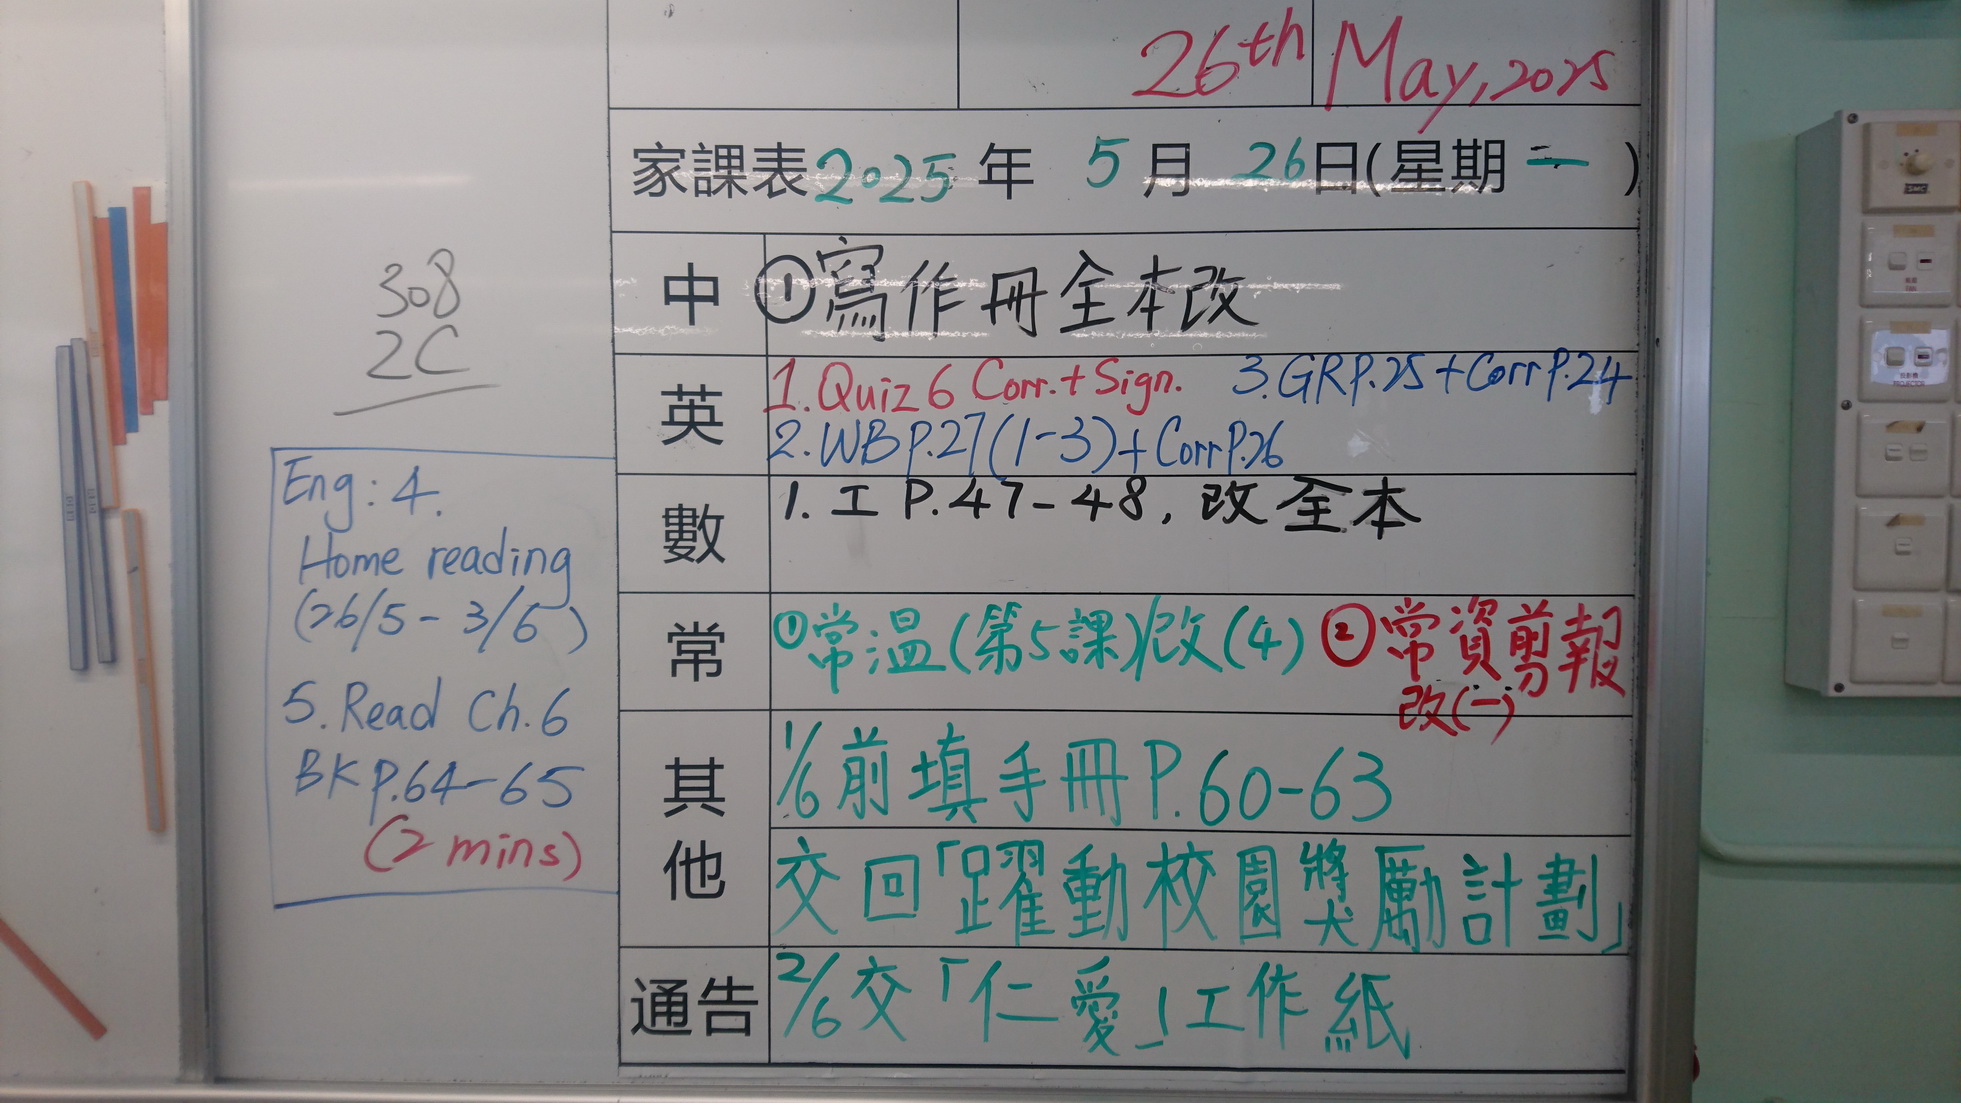 26th May, 2025
家課表 2025 年 5 月 26 日(星期一)
中 ①寫作冊全本改
英 1. Quiz 6 Corr. + Sign. 3. GR P.25 + Corr P.24
2. WB P.27 (1-3) + Corr P.26
數 1. 工 P.47-48, 改全本
常 ①常溫(第5課)/改(4) ②常資剪報
改(一)
其他 1/6 前填手冊 P.60-63
交回「躍動校園獎勵計劃」
通告 2/6 交「仁愛」工作紙
308
2C
Eng: 4.
Home reading
(26/5 - 3/6)
5. Read Ch.6
BK P.64-65
(2 mins)